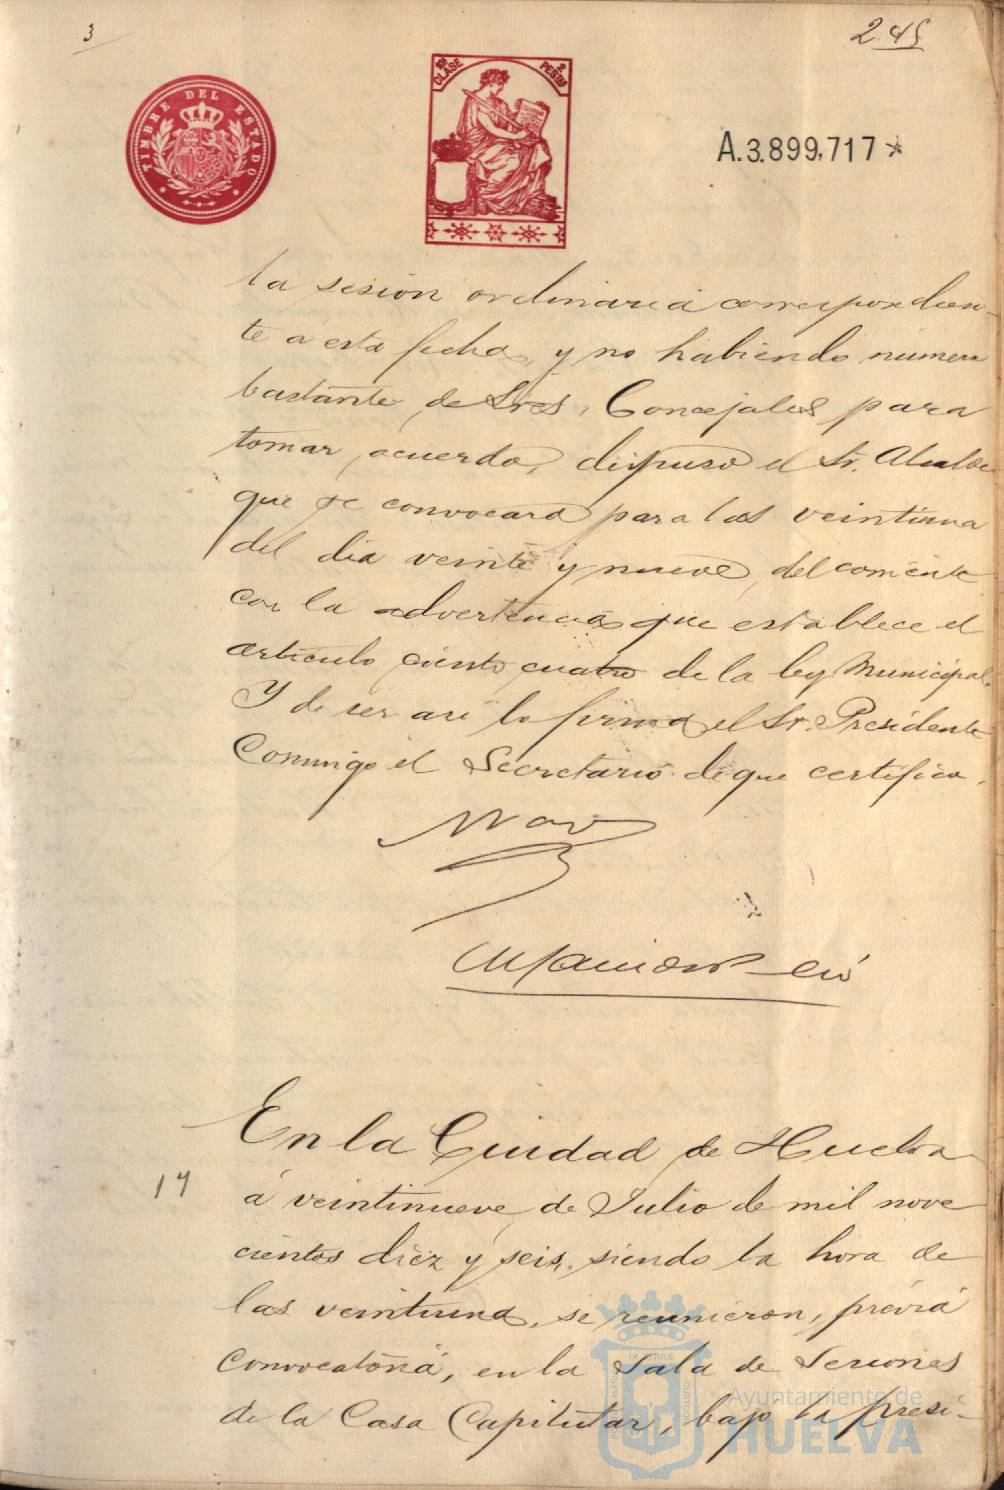 3
245
TIMBRE DEL ESTADO
CLASE
2 PESETAS
A.3.899,717*
la sesión ordinaria correspondien-
te á esta fecha, y no habiendo número
bastante de Sres. Concejales para
tomar acuerdo, dispuso el Sr. Alcalde
que se convocara para las veintiuna
del dia veinte y nueve del corriente
con la advertencia que establece el
artículo ciento cuatro de la ley Municipal.
Y de ser asi lo firma el Sr. Presidente
Conmigo el Secretario de que certifico.
En la Ciudad de Huelva
17
á veintinueve de Julio de mil nove
cientos diez y seis, siendo la hora de
las veintiuna, se reunieron, prévia
convocatoria, en la Sala de Sesiones
de la Casa Capitular, bajo la presi-
Ayuntamiento de
HUELVA